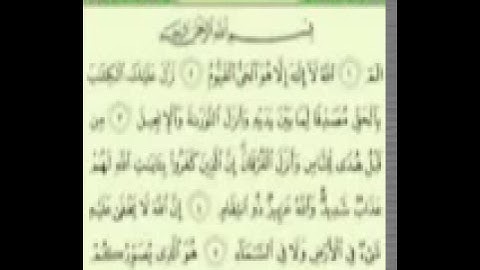 بسم الله الرحمن الرحيم
الم ١ الله لا إله إلا هو الحي القيوم ٢ نزل عليك الكتب
بالحق مصدقا لما بين يديه وأنزل التورىة والإنجيل ٣ من
قبل هدى للناس وأنزل الفرقان إن الذين كفروا بـايت الله لهم
عذاب شديد والله عزيز ذو انتقام ٤ إن الله لا يخفى عليه
شيء في الأرض ولا في السماء ٥ هو الذي يصوركم